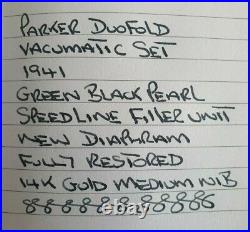 PARKER DUOFOLD
VACUMATIC SET
1941
GREEN BLACK PEARL
SPEEDLINE FILLER UNIT
NEW DIAPHRAM
FULLY RESTORED
14K GOLD MEDIUM NIB